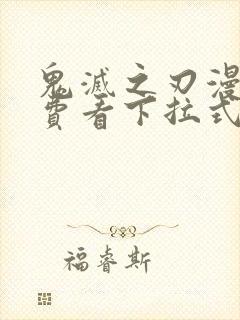 鬼滅之刃漫
費看下拉式
福睿斯